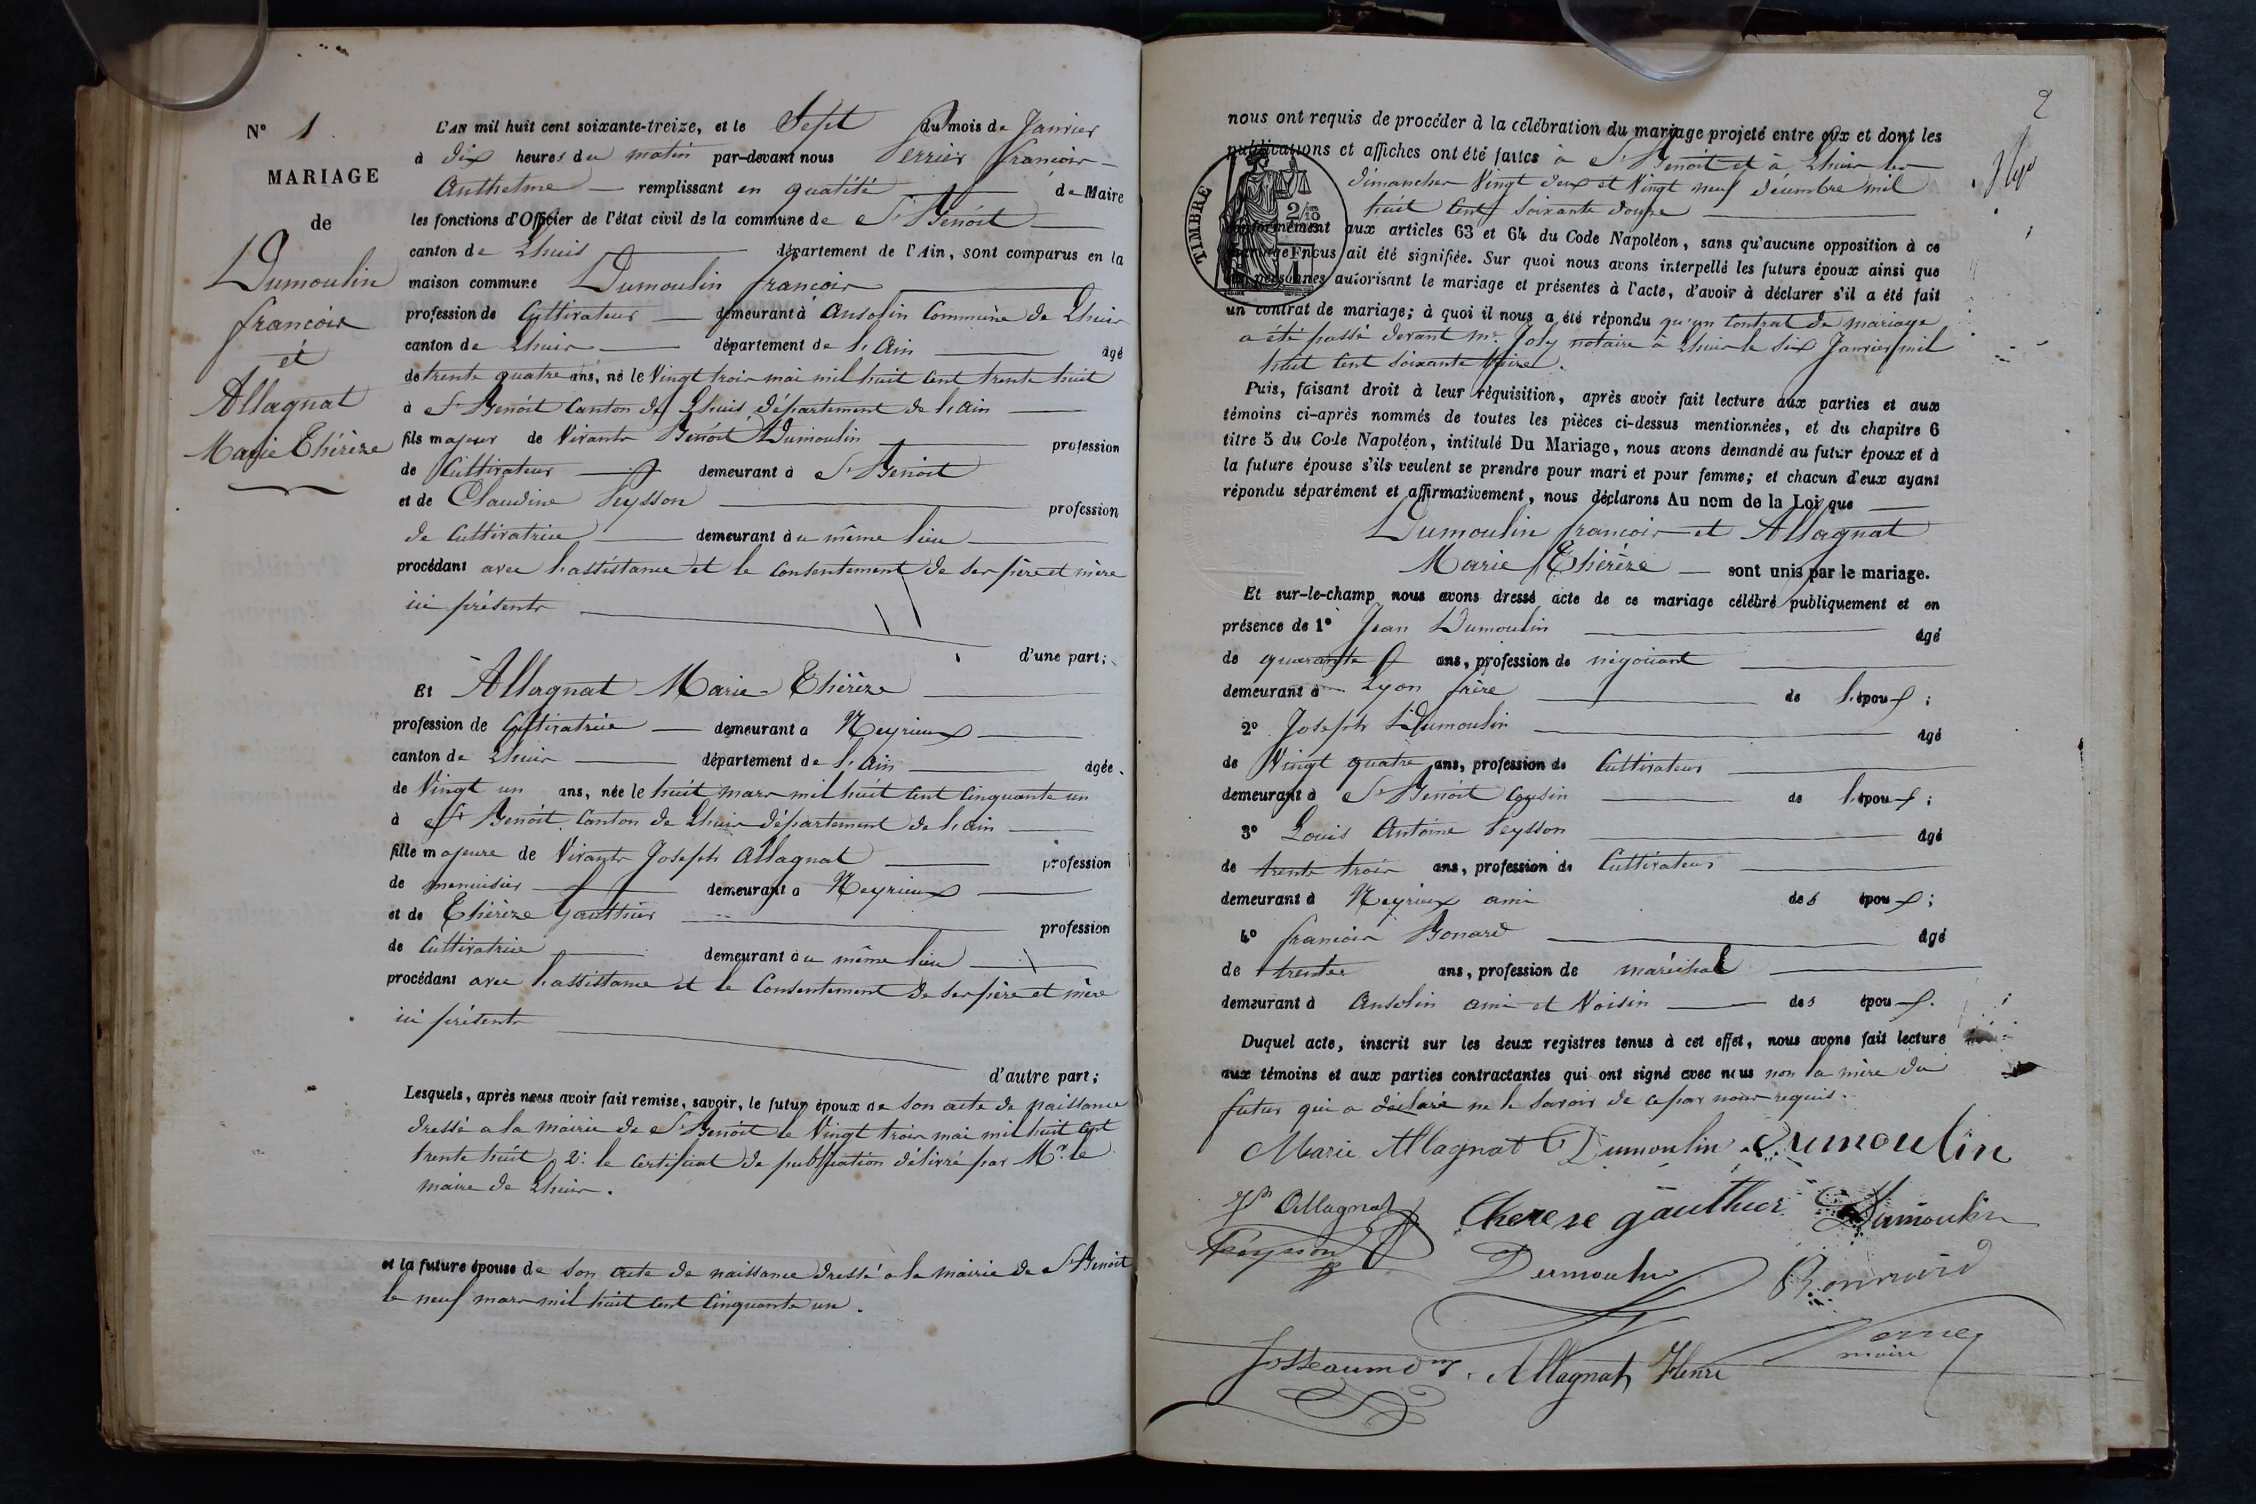 N° 1
MARIAGE
de
Dumoulin
francois
et
Allagnat
Marie Thérèze
L'AN mil huit cent soixante-treize, et le Sept du mois de Janvier
à dix heures du matin par-devant nous francois
Anthelme remplissant en qualité de Maire
les fonctions d'Officier de l'état civil de la commune de St Benoit
canton de Lhuis département de l'Ain, sont comparus en la
maison commune Dumoulin francois
profession de Cultivateur demeurant à Ansolin Commune de Lhuis
canton de Lhuis département de l'Ain âgé
de trente quatre ans, né le Vingt trois mai mil huit cent trente huit
à St Benoit Canton de Lhuis département de l'ain
fils majeur de Vivants Benoit Dumoulin profession
de Cultivateur demeurant à St Benoit
et de Claudine Peysson profession
de Cultivatrice demeurant au même lieu
procédant avec l'assistance et le consentement de ses père et mère
ici présents
d'une part;
Et Allagnat Marie Thérèze
profession de Cultivatrice demeurant a Neyrieux
canton de Lhuis département de l'Ain agée
de Vingt un ans, née le huit mars mil huit cent cinquante un
à St Benoit Canton de Lhuis département de l'ain
fille majeure de Vivants Joseph Allagnat profession
de menuisier demeurant a Neyrieux
et de Thérèze Gauthier profession
de Cultivatrice demeurant au même lieu
procédant avec l'assistance et le Consentement de ses père et mère
ici présents
d'autre part;
Lesquels, après nous avoir fait remise, savoir, le futur époux de son acte de naissance
dressé a la mairie de St Benoit le Vingt trois mai mil huit cent
trente huit 2: le certificat de publication délivré par Mr le
maire de Lhuis.
et la future épouse de son acte de naissance dressé a la mairie de St Benoit
le neuf mars mil huit cent cinquante un.
2
nous ont requis de procéder à la célébration du mariage projeté entre eux et dont les
publications et affiches ont été faites à St Benoit et à Lhuis les
dimanches Vingt deux et Vingt neuf décembre mil
huit cent soixante douze
TIMBRE
2/10
EN SUS
conformément aux articles 63 et 64 du Code Napoléon, sans qu'aucune opposition à ce
mariage nous ait été signifiée. Sur quoi nous avons interpellé les futurs époux ainsi que
les personnes autorisant le mariage et présentes à l'acte, d'avoir à déclarer s'il a été fait
un contrat de mariage; à quoi il nous a été répondu qu'un Contrat de mariage
a été passé devant Mr. Joly notaire à Lhuis le six Janvier mil
huit cent soixante treize.
Puis, faisant droit à leur réquisition, après avoir fait lecture aux parties et aux
témoins ci-après nommés de toutes les pièces ci-dessus mentionnées, et du chapitre 6
titre 5 du Code Napoléon, intitulé Du Mariage, nous avons demandé au futur époux et à
la future épouse s'ils veulent se prendre pour mari et pour femme; et chacun d'eux ayant
répondu séparément et affirmativement, nous déclarons Au nom de la Loi que
Dumoulin francois et Allagnat
Marie Thérèze sont unis par le mariage.
Et sur-le-champ nous avons dressé acte de ce mariage célébré publiquement et en
présence de 1° Jean Dumoulin âgé
de quarante ans, profession de négociant
demeurant à Lyon frère de l'époux;
2° Joseph Dumoulin âgé
de Vingt quatre ans, profession de Cultivateur
demeurant à St Benoit Cousin de l'époux;
3° Louis Antoine Peysson âgé
de trente trois ans, profession de Cultivateur
demeurant à Neyrieux ami des époux;
4° francois Bonard âgé
de trente ans, profession de maréchal
demeurant à Ansolin ami et Voisin des époux.
Duquel acte, inscrit sur les deux registres tenus à cet effet, nous avons fait lecture
aux témoins et aux parties contractantes qui ont signé avec nous non la mère du
futur qui a déclaré ne le savoir de ce par nous requis.
Marie Allagnat Dumoulin Dumoulin
Jh Allagnat Therese gauthier Dumoulin
Peysson Dumoulin Bonnard
Allagnat Henri maire